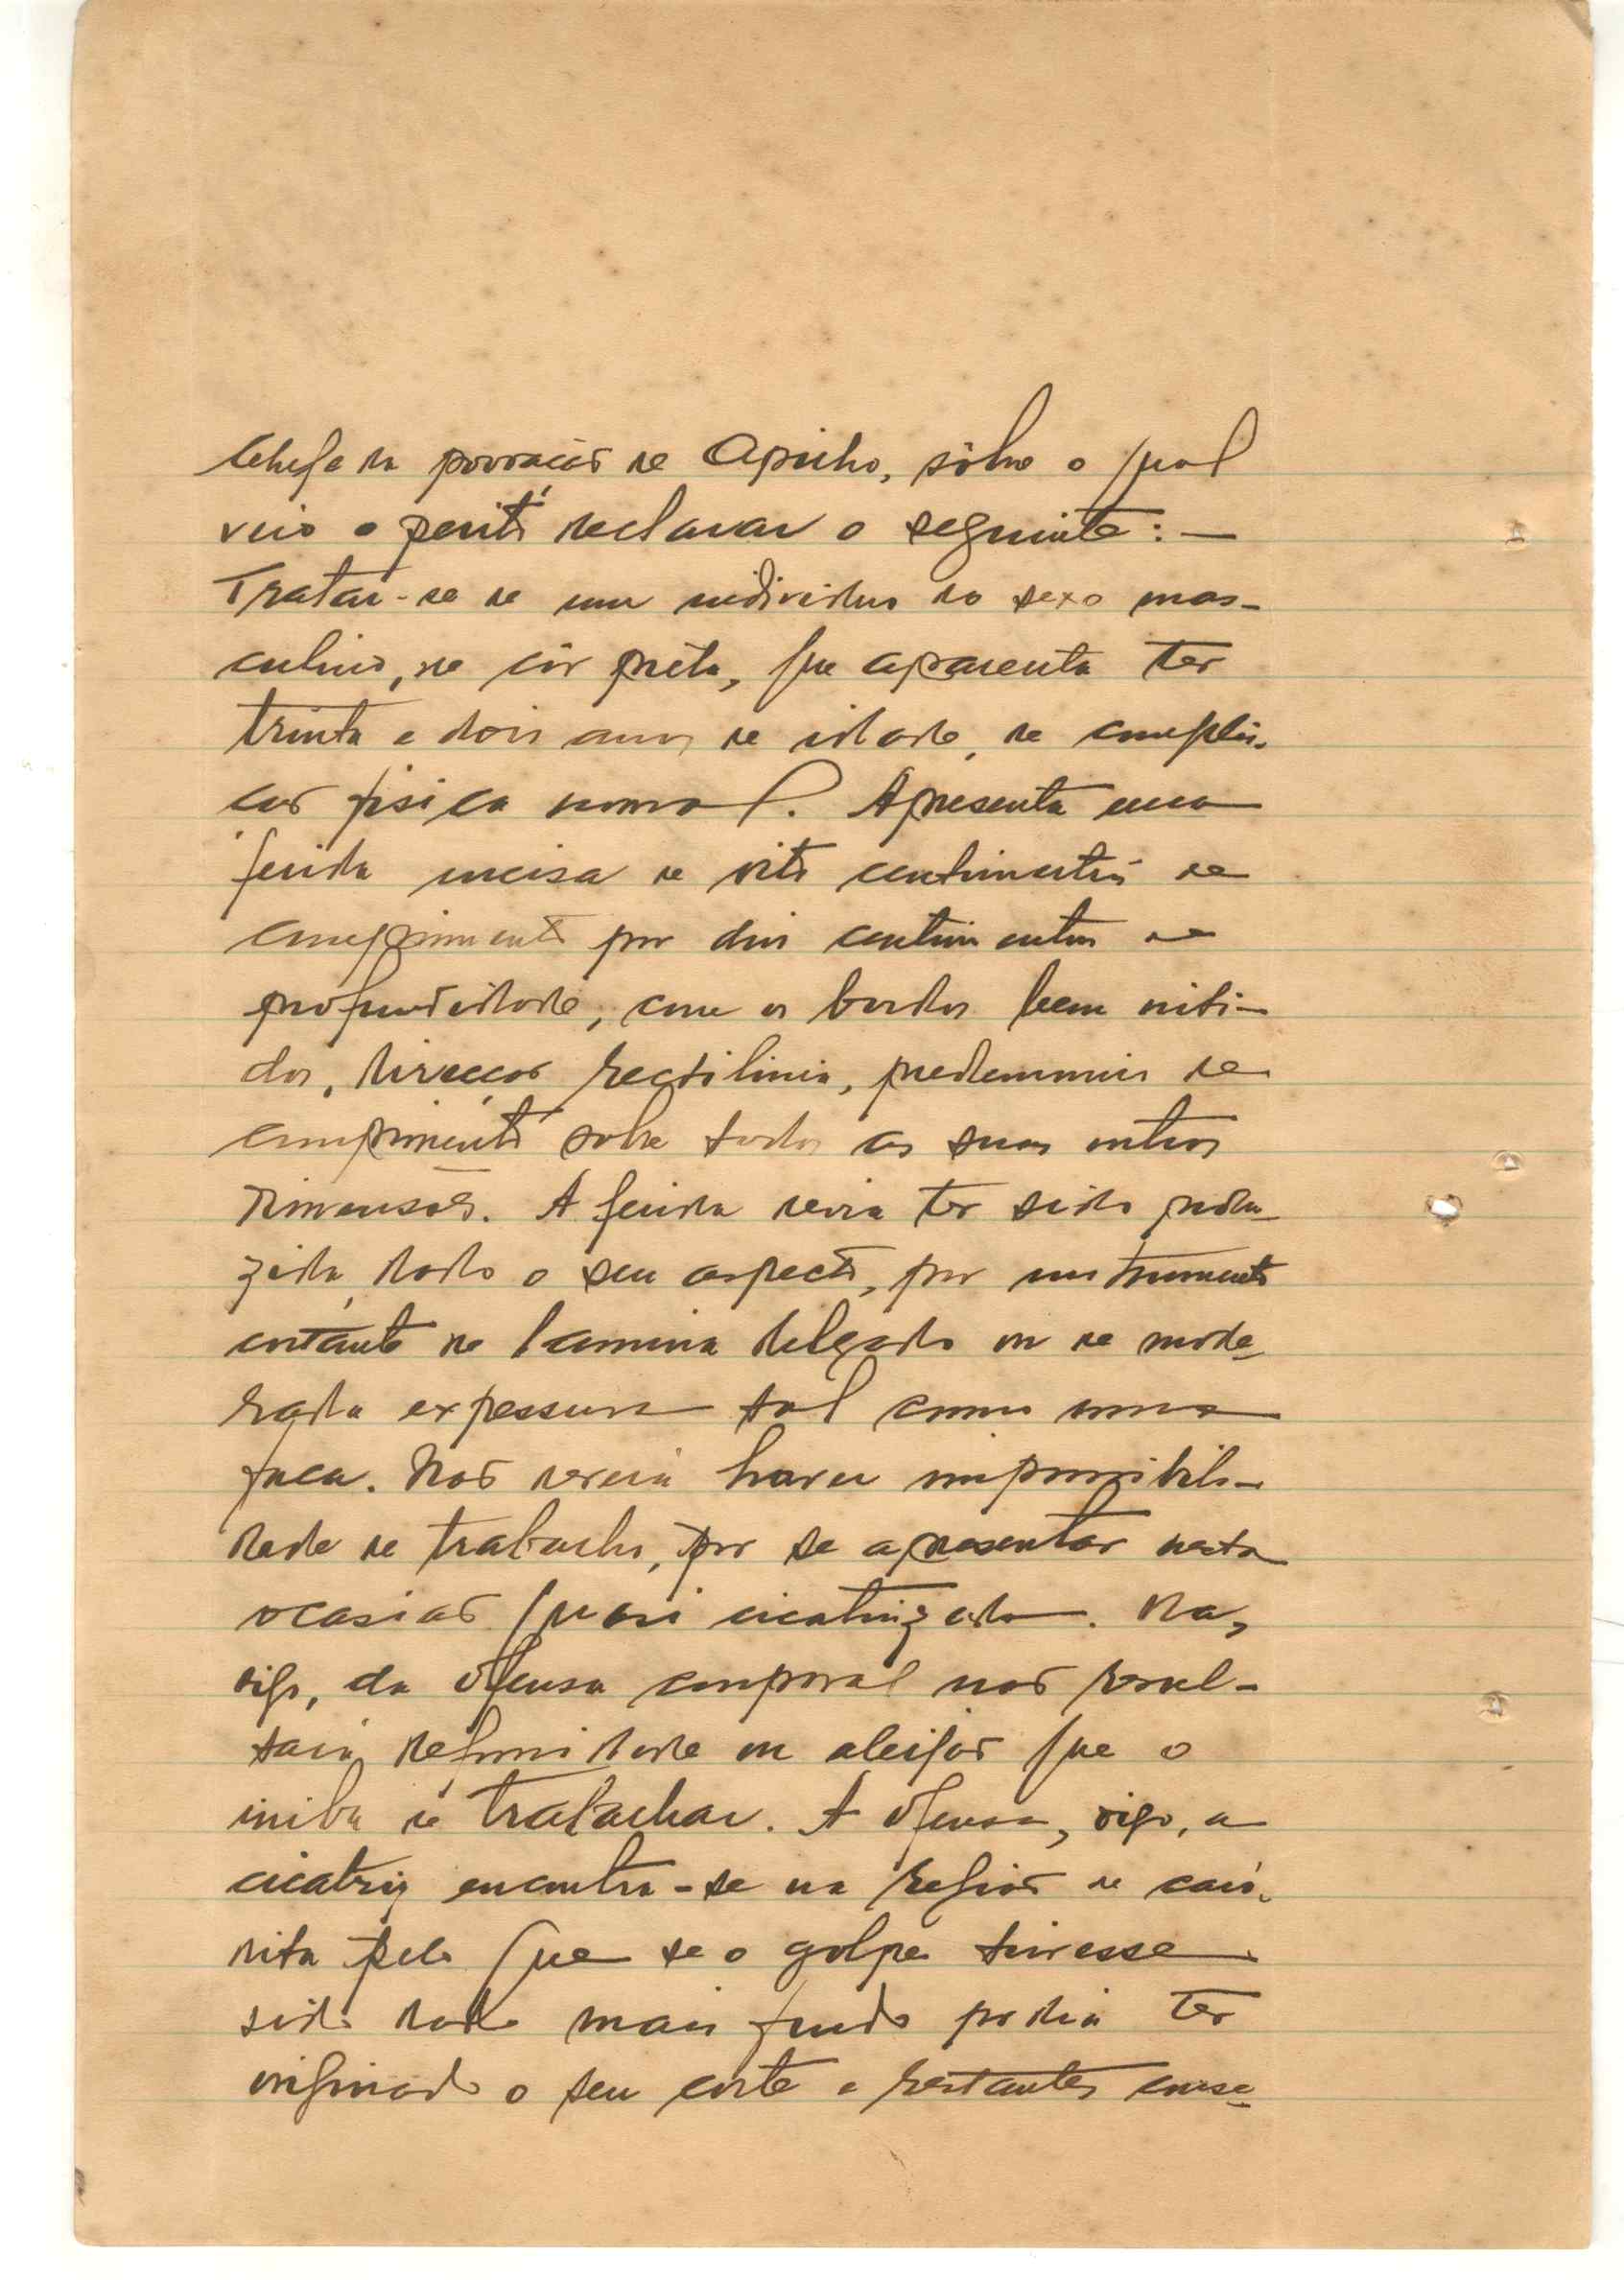 Chefe da povoação de Apicho, sôbre o qual
veio o perito declarar o seguinte: —
Tratar-se de um individuo do sexo mas-
culino, de côr preta, que aparenta ter
trinta e dois anos de idade, de complei-
ção fisica normal. Apresenta uma
ferida incisa de oito centimentros de
comprimento por dois centimentros de
profundidade, com os bordos bem niti-
dos, direcção rectilinia, predominio de
comprimento sobre todas as suas outras
dimensões. A ferida devia ter sido produ-
zida, dado o seu aspecto, por instrumento
cortante de lamina delgada ou de mode-
rada expessura tal como uma
faca. Não deverá haver impossibili-
dade de trabalho, por se apresentar nesta
ocasião quasi cicatrizada. Da,
digo, da ofensa corporal não resul-
tará deformidade ou aleijão que o
iniba de trabalhar. A ofensa, digo, a
cicatriz encontra-se na região de caró-
tida pelo que se o golpe tivesse
sido dado mais fundo podia ter
originado o seu corte e restantes conse-